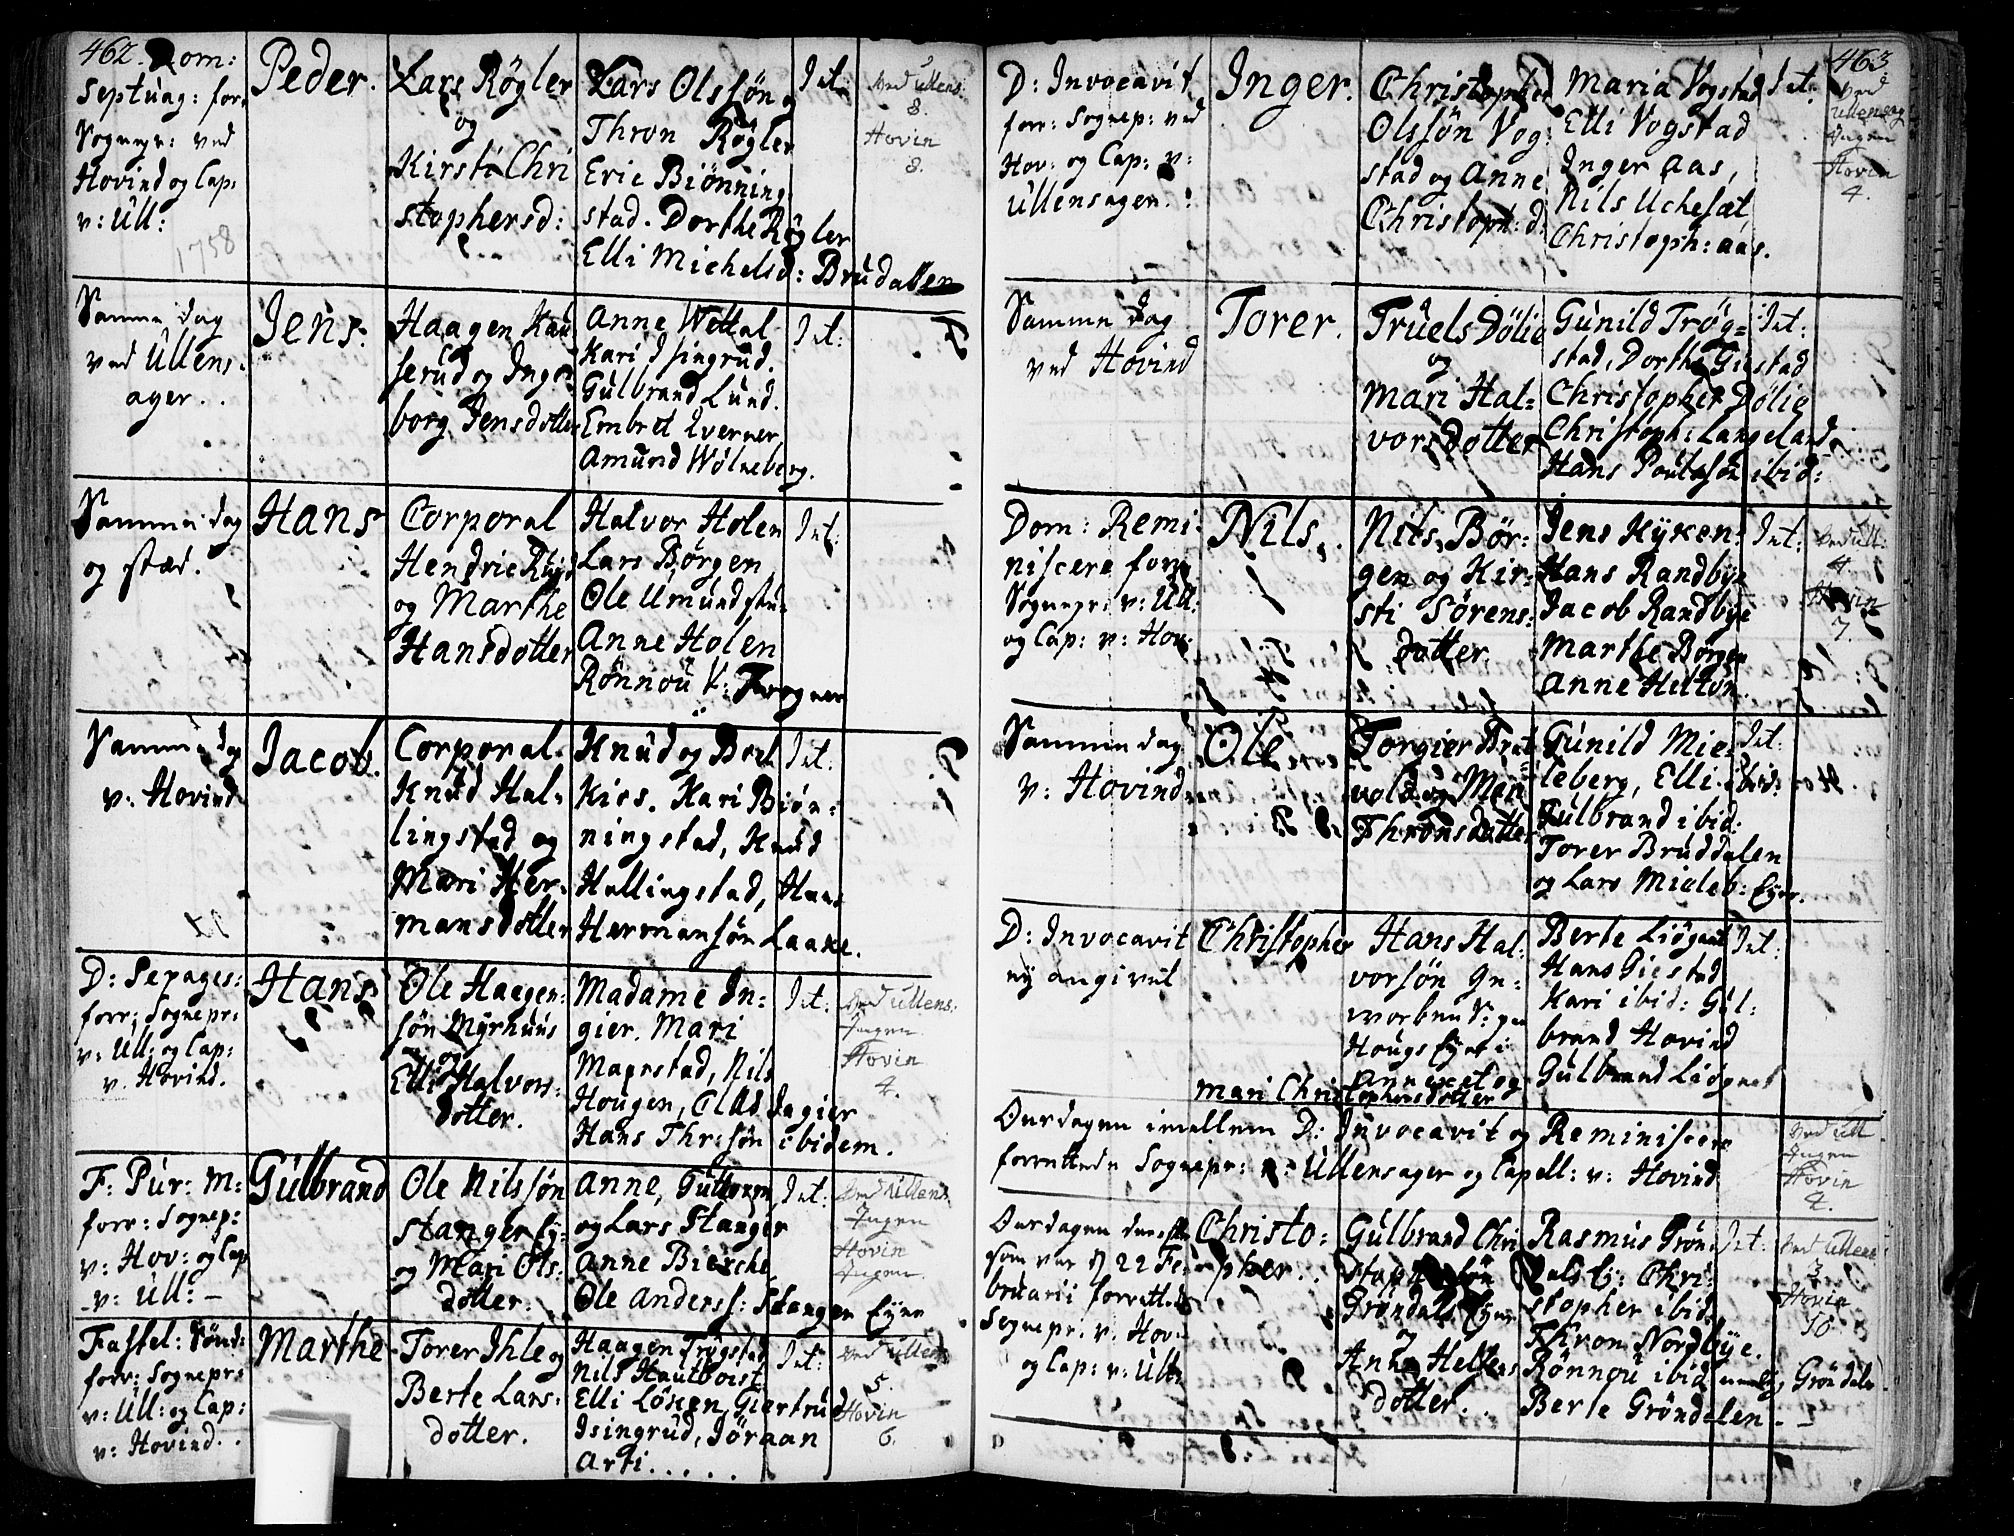 462. Dom:
Septuag: forr:
Sognepr: ved
Hovind og Cap:
v: Ull:
1758
Peder.
Lars Røgler
og
Kirsti Chri
stophersd:
Lars Olssøn
Thron Røgler
Eric Biønning
stad. Dorthe Røgler
Elli Michelsd: Brudalen
Int:
Ved Ullens:
8.
Hovin
8.
Samme dag
ved Ullens-
ager.
Jens.
Haagen Kau
serud og Inge
borg Jensdotter
Anne Wettal
Kari Isingrud.
Gulbrand Lund.
Embret
Amund Wølneberg.
Int:
Samme dag
og stæd.
Hans
Corporal
Hendric
og Marthe
Hansdotter
Halvor Holen
Lars Børgen
Ole
Anne Holen
Rønnou K: Frogner
Int:
Samme dag
v: Hovind
Jacob.
Corporal
Knud Hal-
lingstad og
Mari Her-
mansdotter
Knud og Berl
Kios. Kari Biøn-
ningstad, Knud
Hallingstad, Hans
Hermansøn Laake.
Int:
D: Sexages:
forr: Sognepr:
v: Ull: og Cap:
v. Hovind.
Hans
Ole Haagen-
søn Myrhuus
og
Elli Halvors-
dotter.
Madame In-
gier. Mari
Magestad, Nils
Hougen, Ingier
Hans Thr:søn ibidem.
Int:
Ved Ullens:
Ingen
Hovin
4.
F: Pur: M:
forr: Sognep:
v: Hov: og Cap
v: Ull:
Gulbrand
Ole Nilssøn
Stanger Ey:
og Mari Ols-
dotter.
Anne, Guttorm
og Lars Stanger
Anne Bierche
Ole Anderss: Stanger Eyer
Int:
Ved Ullens
Ingen
Hovin
Ingen.
Fastel: Sønd:
forr: Sognepr:
v: Ull: og Cap:
v: Hovind.
Marthe
Torer Ihle og
Berte Lars-
dotter.
Haagen Trøgstad
Nils Hautboist
Elli Løken, Giertrud
Isingrud, Jøraan
Arti
Int:
Ved Ullens
5.
Hovin
6.
463
D: Invocavit
forr: Sognep: ved
Hov: og Cap: v:
Ullensagen.
Inger.
Christopher
Olssøn Vog-
stad og Anne
Christoph: d:
Maria Vogstad
Elli Vogstad
Inger Aas,
Nils Uchesæt
Christoph: Aas.
Int:
Ved
Ullensag
Ingen
Hovin
4.
Samme dag
ved Hovind
Torer.
Truels Dølie
og
Mari Hal-
vorsdotter
Gunild Trøg-
stad, Dorthe Giestad
Christopher Dølie
Christoph: Langeland
Hans Poulssøn ibid:
Int:
Dom: Remi-
niscere forr:
Sognepr: v: Ull:
og Cap: v: Hov:
Nils.
Nils Bør-
gen og Kir-
sti Sørens-
dotter.
Jens Kyken-
Hans Randbye
Jacob Randbye
Marthe Børgen
Anne Helton.
Int:
Ved Ull:
4
Hovin
7.
Samme dag
v: Hovind
Ole
Torgier Brat
vold og Mari
Thronsdatter
Gunild Mie-
leberg, Elli ibid:
Gulbrand ibid:
Torer Bruddalen
og Lars Mieleb: Eyer.
Int:
D: Invocavit
ey angivet
Christopher
Hans Hal-
vorsøn Ge-
worben S: paa
Hougs Eyer i
Annexet og
Mari Christophersdotter
Berte Liøgaat
Hans Giestad
Kari ibid: Gul-
brand Hovind
Gulbrand Liøgaat
Int:
Onsdagen imellem D: Invocavit og Reminiscere
forrettede Sognepr: v: Ullensager og Capell: v: Hovind
Ved Ull
Ingen
Hovin
4.
Onsdagen
som var d 22 Fe-
bruarii forrettede
Sognepr: v: Hov:
og Cap: v: Ull:
Christo-
pher.
Gulbrand Chri
stophersøn
Grøndals Eyer
og
Anne Helges
dotter.
Rasmus Grøn-
dals E: Chri-
stopher ibid.
Thron Nordbye.
Rønnou ibid Grøndals
Berte Grøndalen
Int:
Ved Ullens
3
Hovin
10